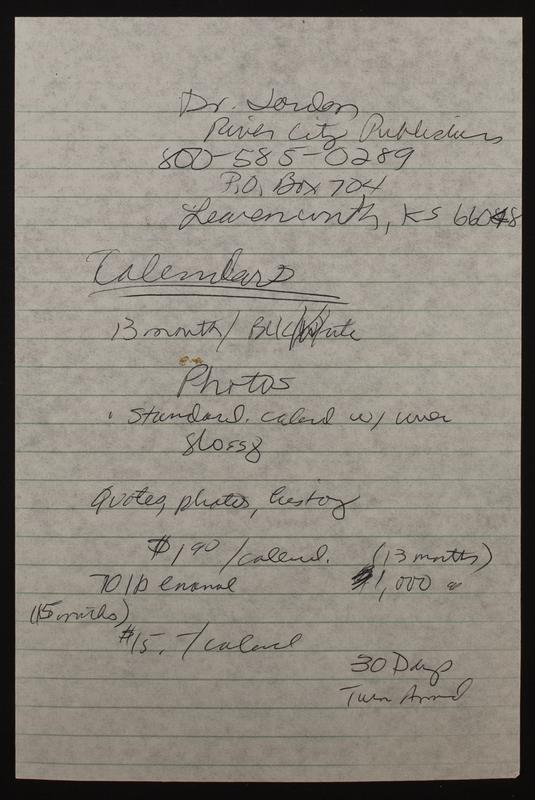 Dr. Jordan
River City Publishers
800-585-0289
P.O. Box 704
Leavenworth, KS 66048
Calendars
13 month / Blk/White
Photos
Standard. calend w/ cover
glossy
Quotes, photos, history
$1.90 /calend. (13 months)
70 lb enamel $1,000
(15 months)
$15. /calend
30 Days
Turn Around